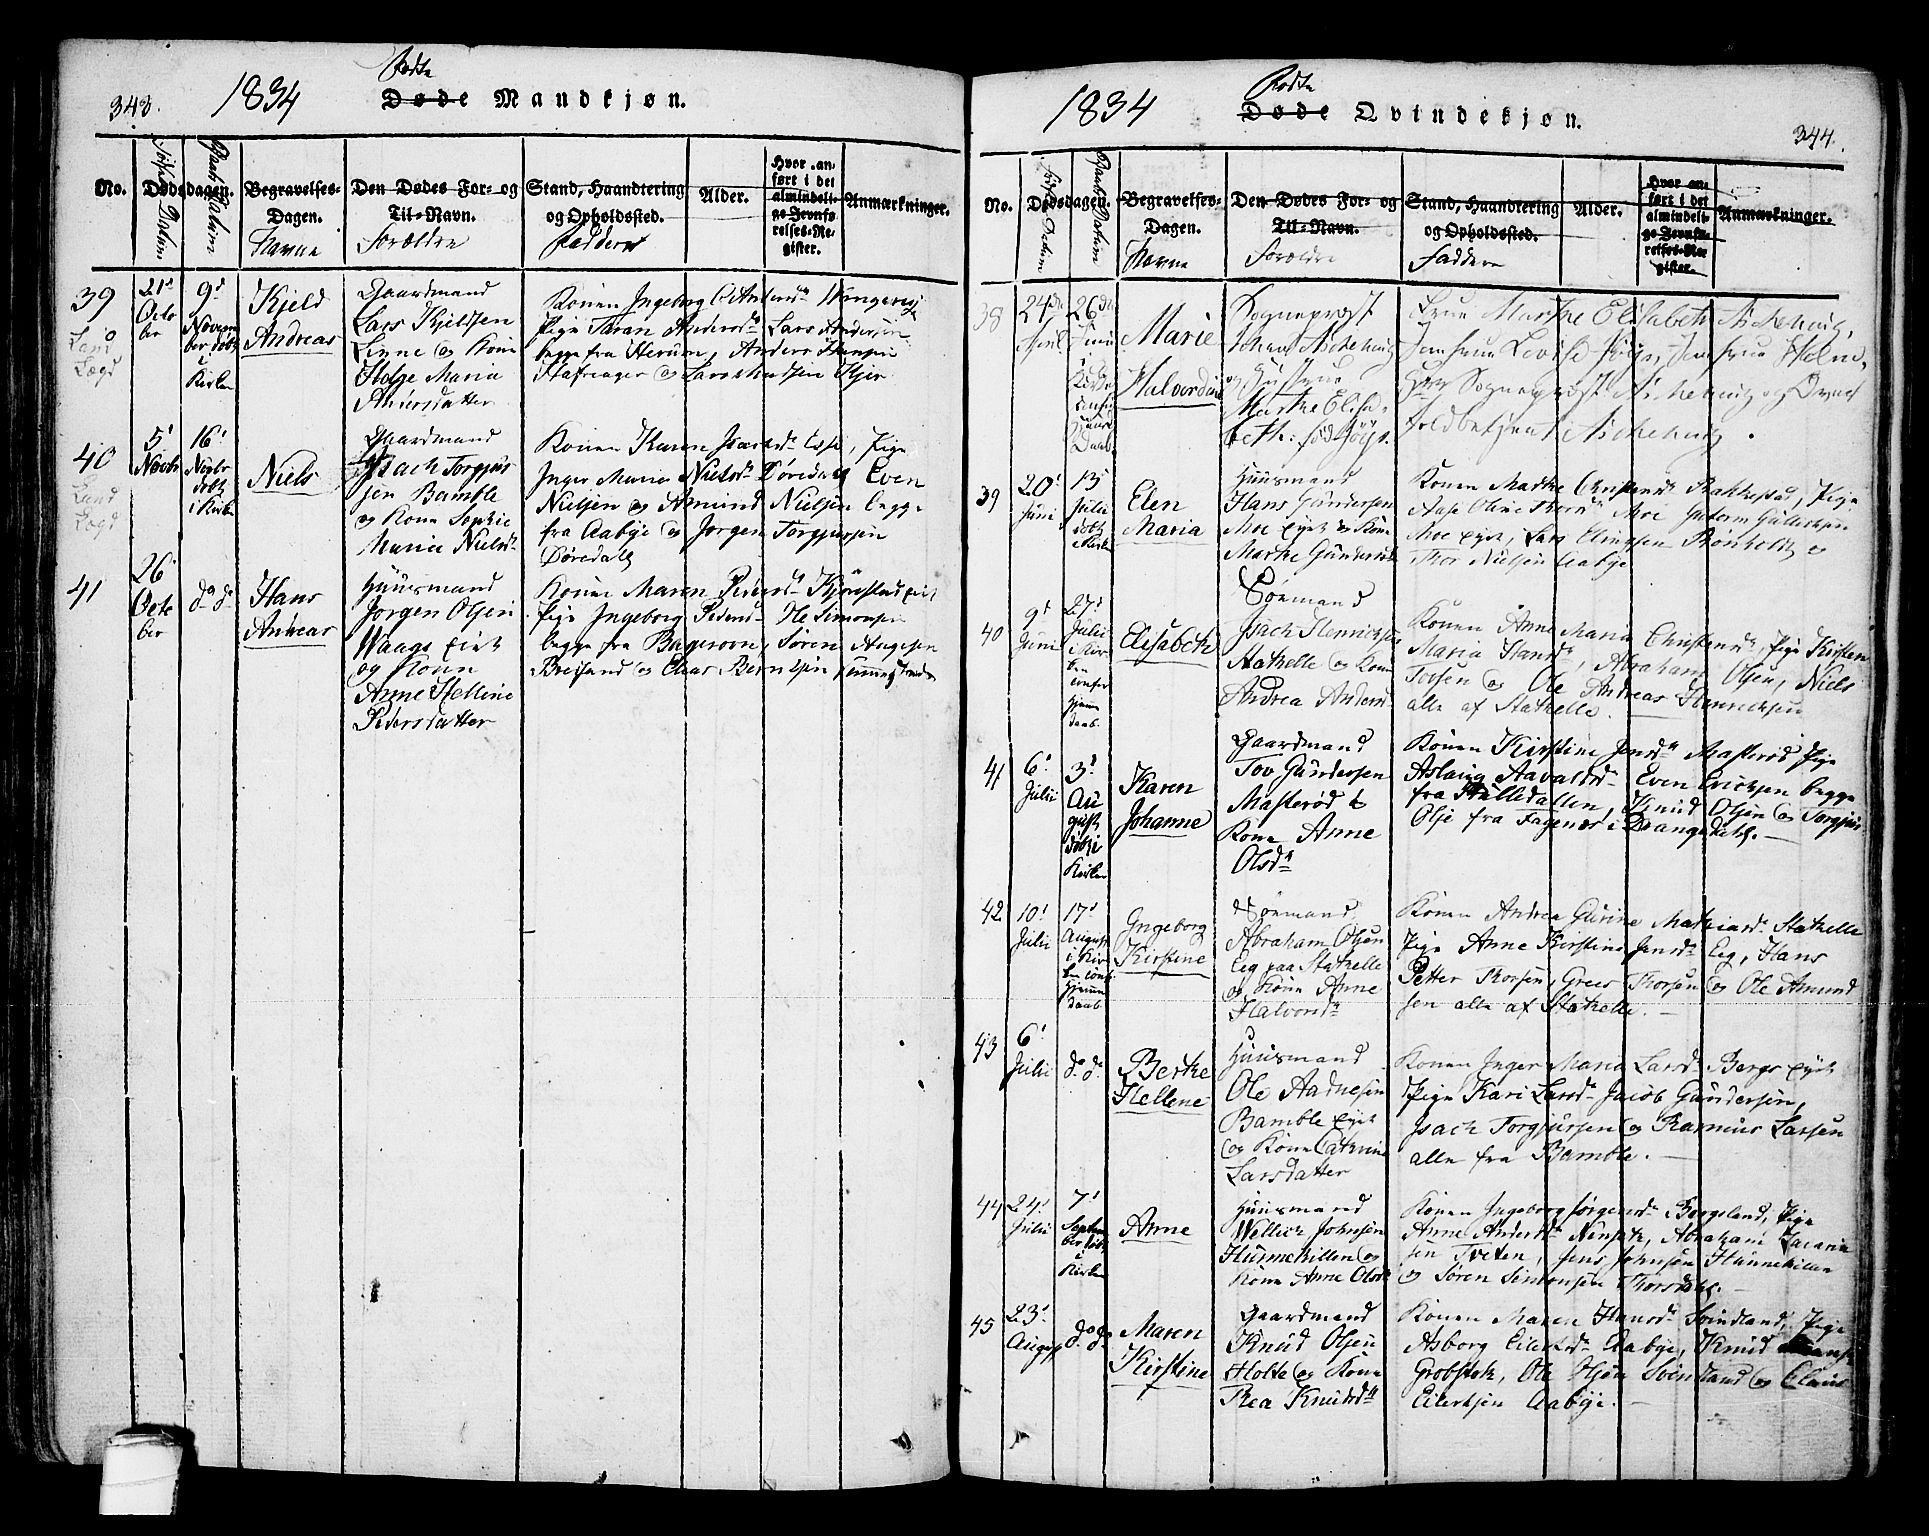 343.
1834
Fødte
Døde Mandkjøn.
No.
Dødsdagen.
Fødsels Datum
Daabs Datum
Begravelses-
Dagen.
Navne
Den Dødes For- og
Til-Navn.
Forældre
Stand, Haandtering
og Opholdssted.
Faddere
Alder.
Hvor an-
ført i det
almindeli-
ge Jevnfø-
relses-Re-
gister.
Anmærkninger.
39
Land
Lægd
21d
Octo
ber
9d
Novem
ber døbt
i
Kirken
Kjeld
Andreas
Gaardmand
Lars Kjeldsen
Linne og Kone
Helge Maria
Andersdatter
Konen Ingeborg Andersd.
Pige Taran Andersd. Lars Andersen
begge fra Herum, Anders Hansen
Hafsager og Lars Knudsen Kjer
40
Land
Lægd
5d
Novbr
16d
Novbr
døbt
i Kirken
Niels
Gaardmand
Isach Torgjus
sen Bamble
og Kone Sophie
Maria Nielsd.
Konen Karen Isacsd. Esse, Pige
Inger Maria Nielsd. Døredall Even
Nielsen og Amund Nielsen begge
fra Aabye og Jørgen Torgjussen
Døredall
41
26d
Octo
ber
do do
Hans
Andreas
Huusmand
Jørgen Olsen
Waags Eiet
og Konen
Anne Helline
Pedersdatter
Konen Maren Pedersd. Kjørstad eiet
Pige Ingeborg Pedersd. Ole Simonsen
begge fra Bagerovn, Søren Aagesen
Breisand og Claus Berntsen
1834
Fødte
Døde Qvindekjøn.
344.
No.
Dødsdagen.
Fødsels Datum
Daabs Datum
Begravelses-
Dagen.
Navne
Den Dødes For- og
Til-Navn.
Forældre
Stand, Haandtering
og Opholdssted.
Faddere
Alder.
Hvor an-
ført i det
almindeli-
ge Jevnfø-
relses-Re-
gister.
Anmærkninger.
38
24de
April
26de
Juni
i
Kirken
Hjemme
Daab
Marie
Halvordine
Sogneprost
Johan Aschehoug
og Hustrue
Marthe Elisa-
beth: fød Jølst.
Frue Marthe Elisabeth Aschehoug,
Jomfrue Lovise Jølst, Jomfrue Holm,
Herr Sogneprost Aschehoug og
Toldbetjent Aschehoug.
39
20d
Juni
13d
Julii
døbt
i Kirken
Elen
Maria
Huusmand
Hans Gundersen
Moe Eyet og Kone
Marthe Gundersd.
Konen Marthe Christensd. Bakkestad, Pige
Aase Oline Thorsd. Moe Guttorm Gullichsen
Moe eyet, Lars Ellingsen Rønholt og
Thor Nielsen Aabye
40
9d
Juni
27d
Julii
i Kir
ken
confir
hjemme
daab
Elisabeth
Sømand
Isach Henrichsen
Stathelle og Kone
Andrea Andersd.
Konen Anne Maria Christensd., Pige Kirsten
Maria Hansd., Abraham Olsen, Niels
Torsen og Ole Andreas Henrichsen
alle af Stathelle.
41
6d
Julii
3d
Au
gust
døbt i
Kirken
Karen
Johanne
Gaardmand
Tov Gundersen
Masterød &
Kone Anne
Olsd.
Konen Kirstine Jensd. Masterød Pige
Aslaug Aavaldsd. Even Erichsen begge
fra Hulledallen, Knud Olsen og Torgjus
Olse fra Fagenes i Drangedahl.
42
10d
Julii
17d
August
i Kir
ken conf
hjemme
daab
Ingeborg
Kirstine
Sømand
Abraham Olsen
Eeg paa Stathelle
og Kone Anne
Halvorsd.
Konen Andrea Gurine Mathiasd. Stathelle
Pige Anne Kirstine Jensd. Eeg, Hans
Petter Thorsen, Grees Thorsen og Ole Amund
sen alle af Stathelle.
43
6d
Julii
do do
Berthe
Hellene
Huusmand
Ole Aadnesen
Bamble Eyet
og Kone Cathrine
Larsdatter
Konen Inger Maria Larsd. Bergs Eyet
Pige Kari Larsd. Jacob Gundersen,
Isach Torgjussen og Rasmus Larsen
alle fra Bamble.
44
24d
Julii
7d
Septem
ber døbt
i
Kirken
Anne
Huusmand
Wellich Johnsen
Hunnekillen og
Kone Anne Olsd.
Konen Ingeborg Jørgensd. Borgeland, Pige
Anne Andersd. Abraham Zacaria
sen Tveten, Jens Johnsen Hunnekilen
og Søren Simonsen Thorsdahl.
45
23d
August
do do
Maren
Kirstine
Gaardmand
Knud Olsen
Holte og Kone
Rea Knudsd.
Konen Maren Hansd. Svindland, Pige
Asborg Eilertsd. Aabye, Knud
Grobstok, Ole Olsen Svindland og Claus
Eilertsen Aabye.